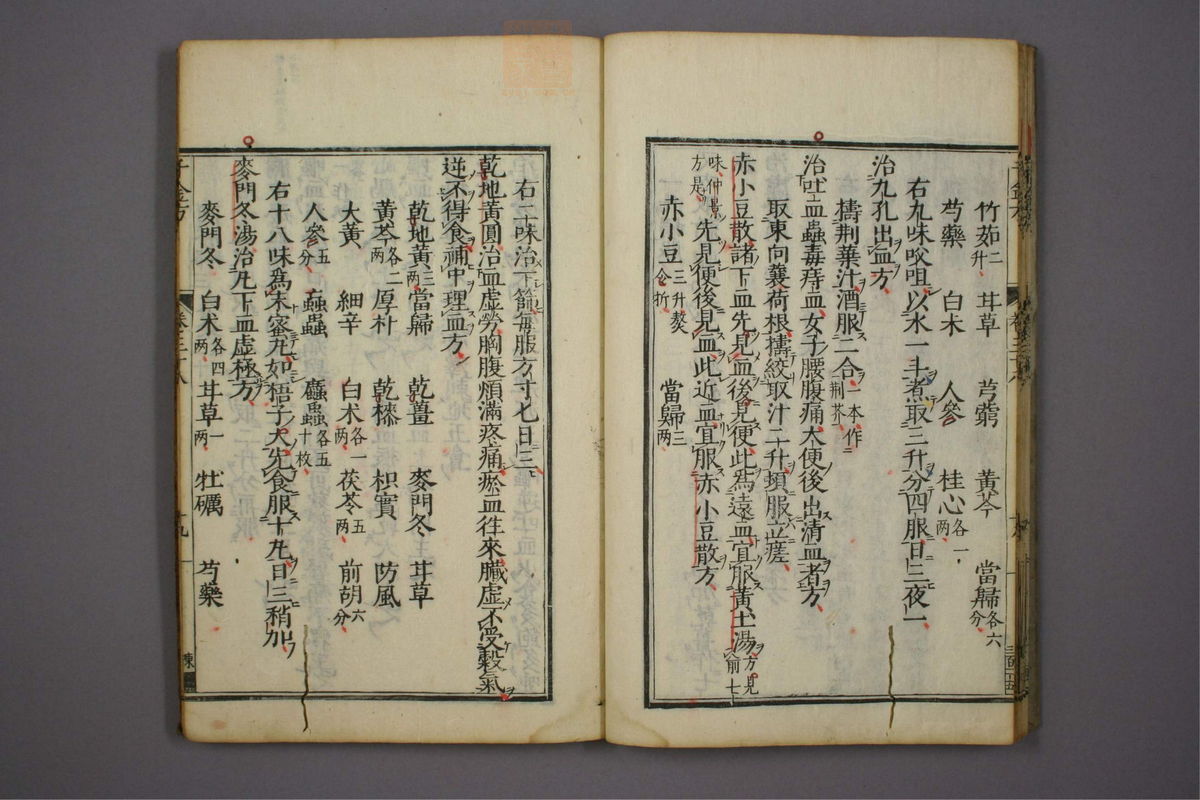 竹茹二升 甘草 芎藭 黃芩 當歸各六分
芍藥 白朮 人參 桂心各一兩
右九味㕮咀以水一斗煮取三升分四服日三夜一
治九孔出血方
擣荆葉汁酒服二合一本作荆芥
治吐血蟲毒痔血女子腰腹痛大便後出清血者方
取東向蘘荷根擣絞取汁二升頓服立瘥
赤小豆散諸下血先見血後見便此爲遠血宜服黃土湯方見前七
味仲景方是先見便後見血此近血宜服赤小豆散方
赤小豆三升熬令拆 當歸三兩
右二味治下篩每服方寸匕日三
乾地黃圓治血虛勞胸腹煩滿疼痛瘀血往來臟虛不受穀氣
逆不得食補中理血方
乾地黃三兩 當歸 乾薑 麥門冬 甘草
黃芩各二兩 厚朴 乾漆 枳實 防風
大黃 細辛 白朮各一兩 茯苓五兩 前胡六分
人參五分 䗪蟲 䖟蟲各五十枚
右十八味爲末蜜丸如梧子大先食服十丸日三稍加
麥門冬湯治九下血虛極方
麥門冬 白朮各四兩 甘草一兩 牡礪 芍藥